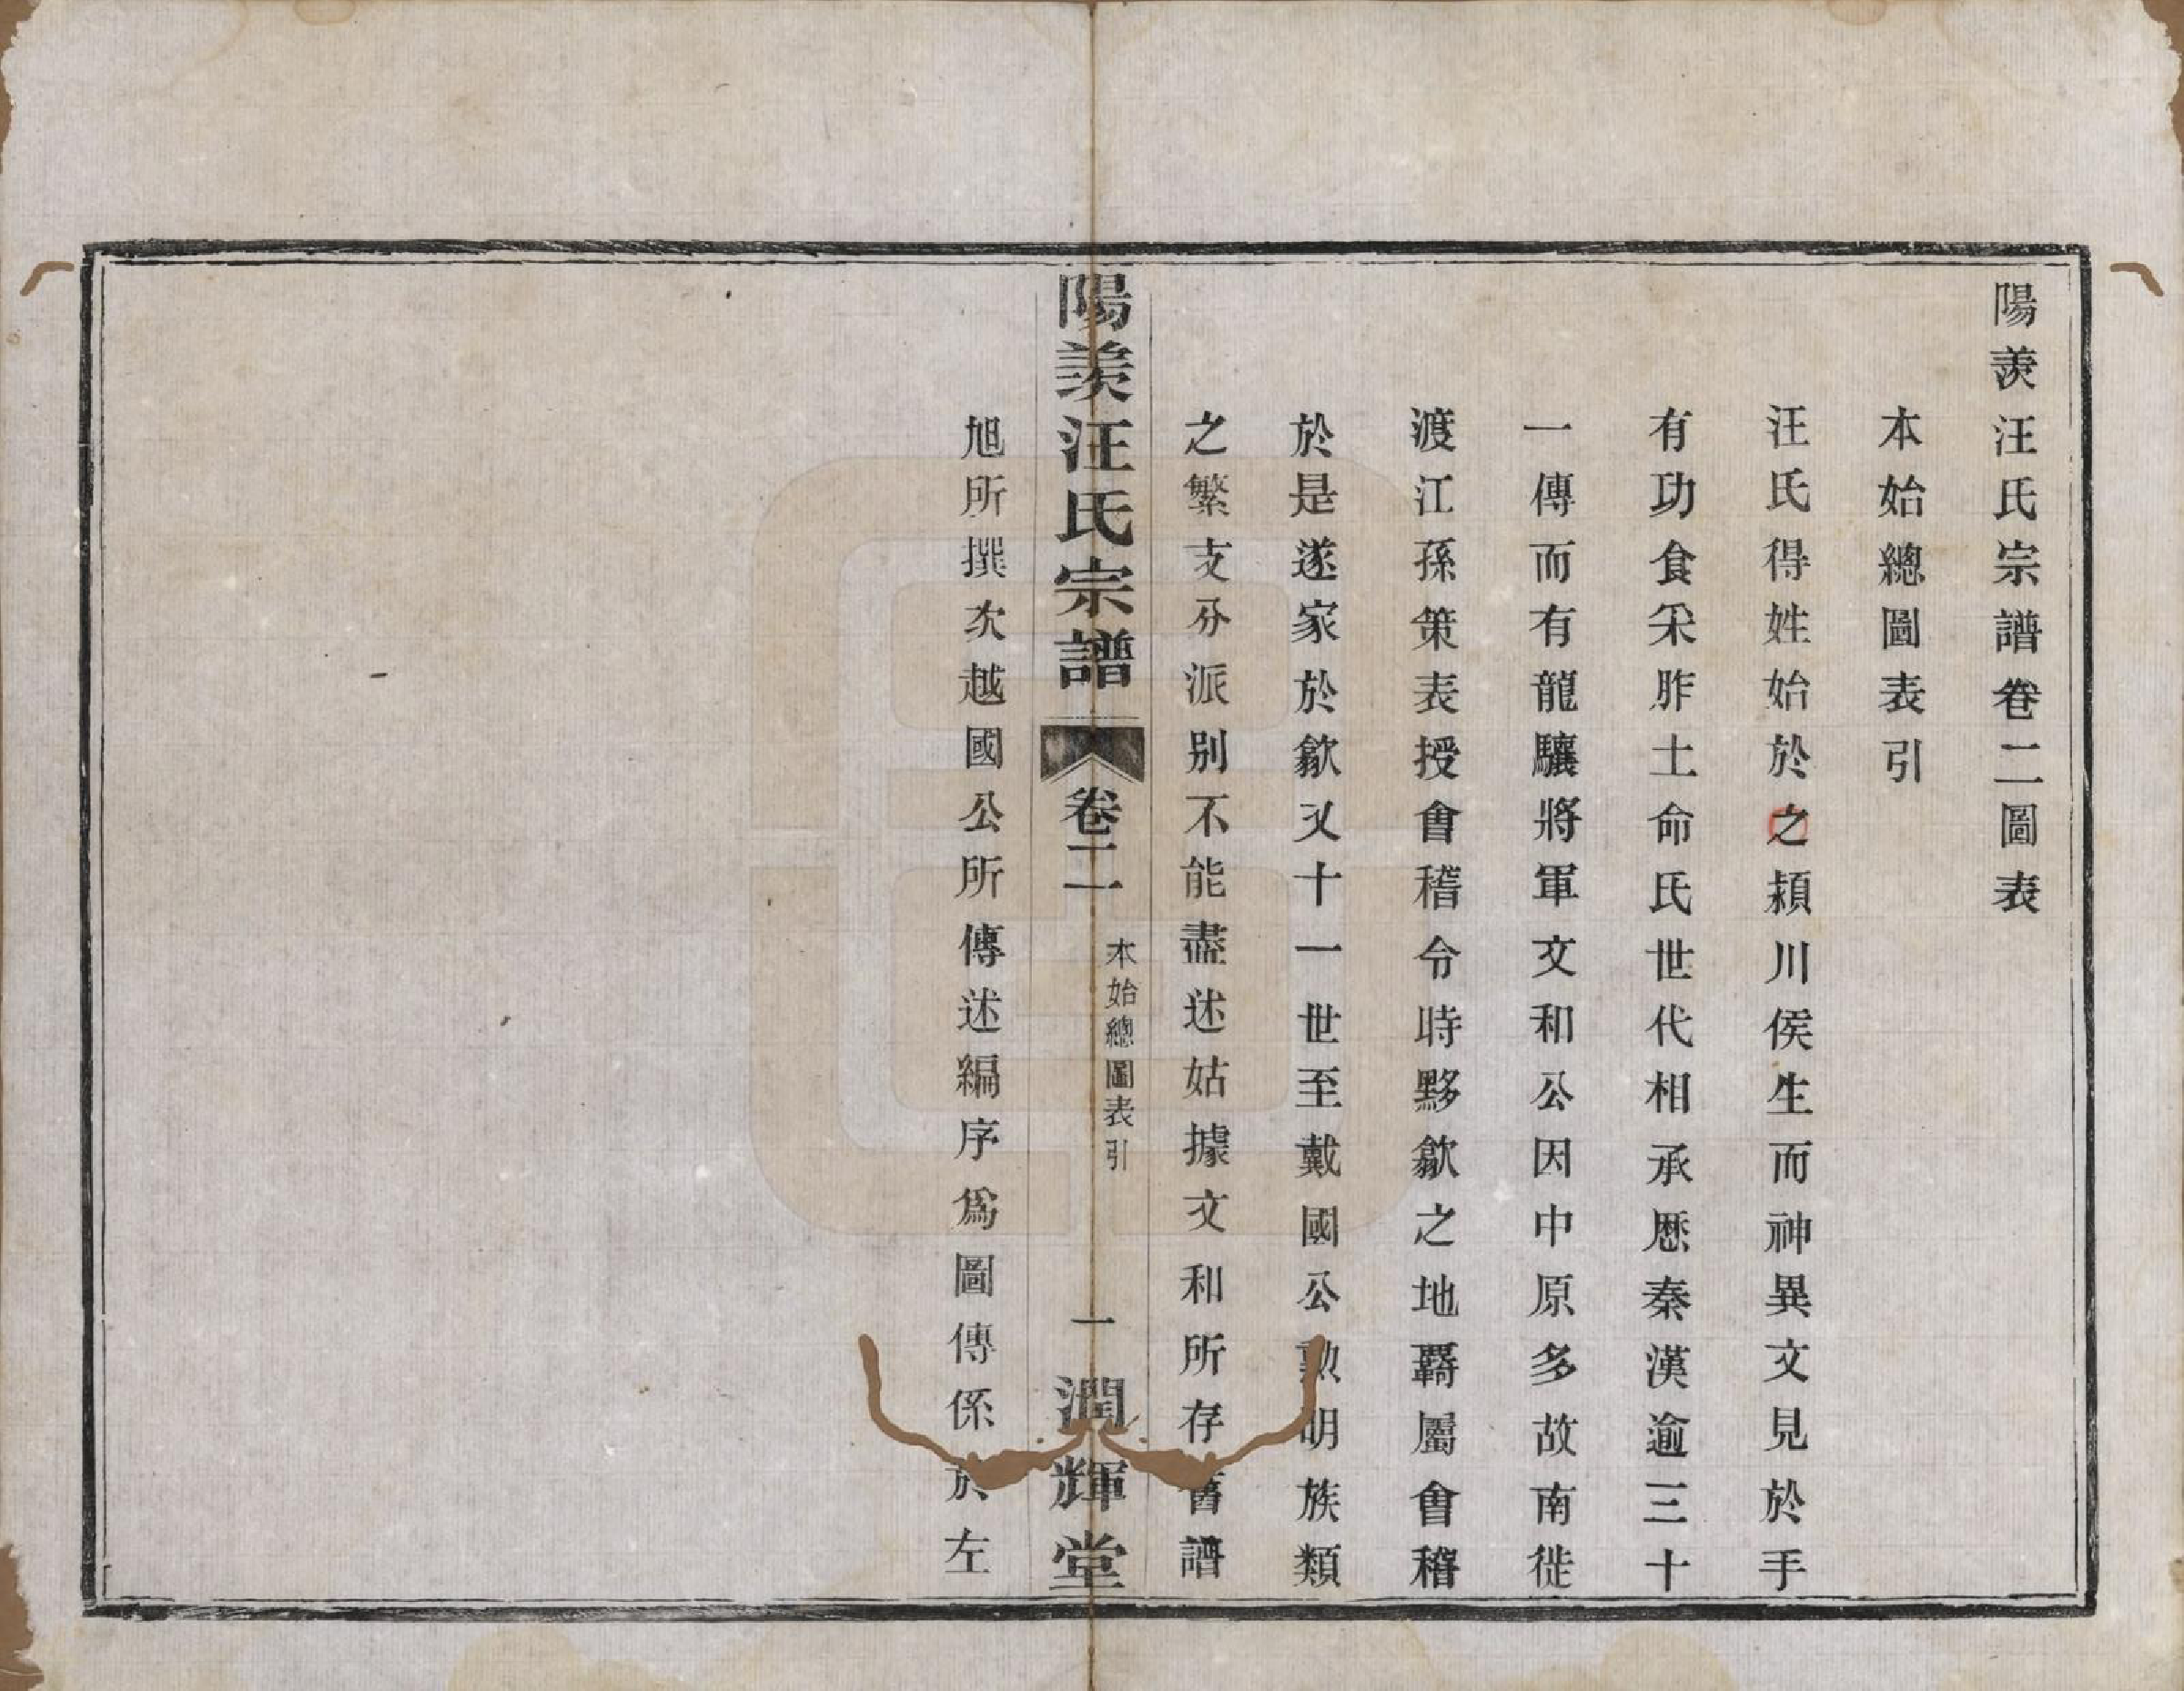 陽羨汪氏宗譜卷二圖表
本始總圖表引
汪氏得姓始於之潁川侯生而神異文見於手
有功食采胙土命氏世代相承歷秦漢逾三十
一傳而有龍驤將軍文和公因中原多故南徙
渡江孫策表授會稽令時黟歙之地覊屬會稽
於是遂家於歙又十一世至戴國公勲明族類
之繁支分派别不能盡述姑據文和所存舊譜
陽羨汪氏宗譜 卷二 本始總圖表引 一 潤輝堂
旭所撰次越國公所傳述編序爲圖傳係於左